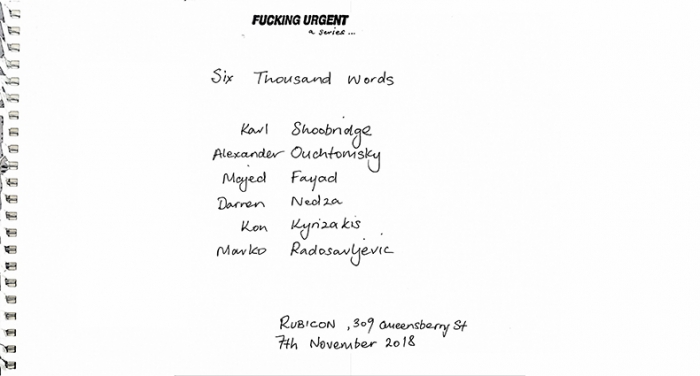 FUCKING URGENT
a series...
Six Thousand Words
Karl Shoobridge
Alexander Ouchtomsky
Majed Fayad
Darren Nedza
Kon Kyrizakis
Marko Radosavljevic
RUBICON, 309 Queensberry St
7th November 2018